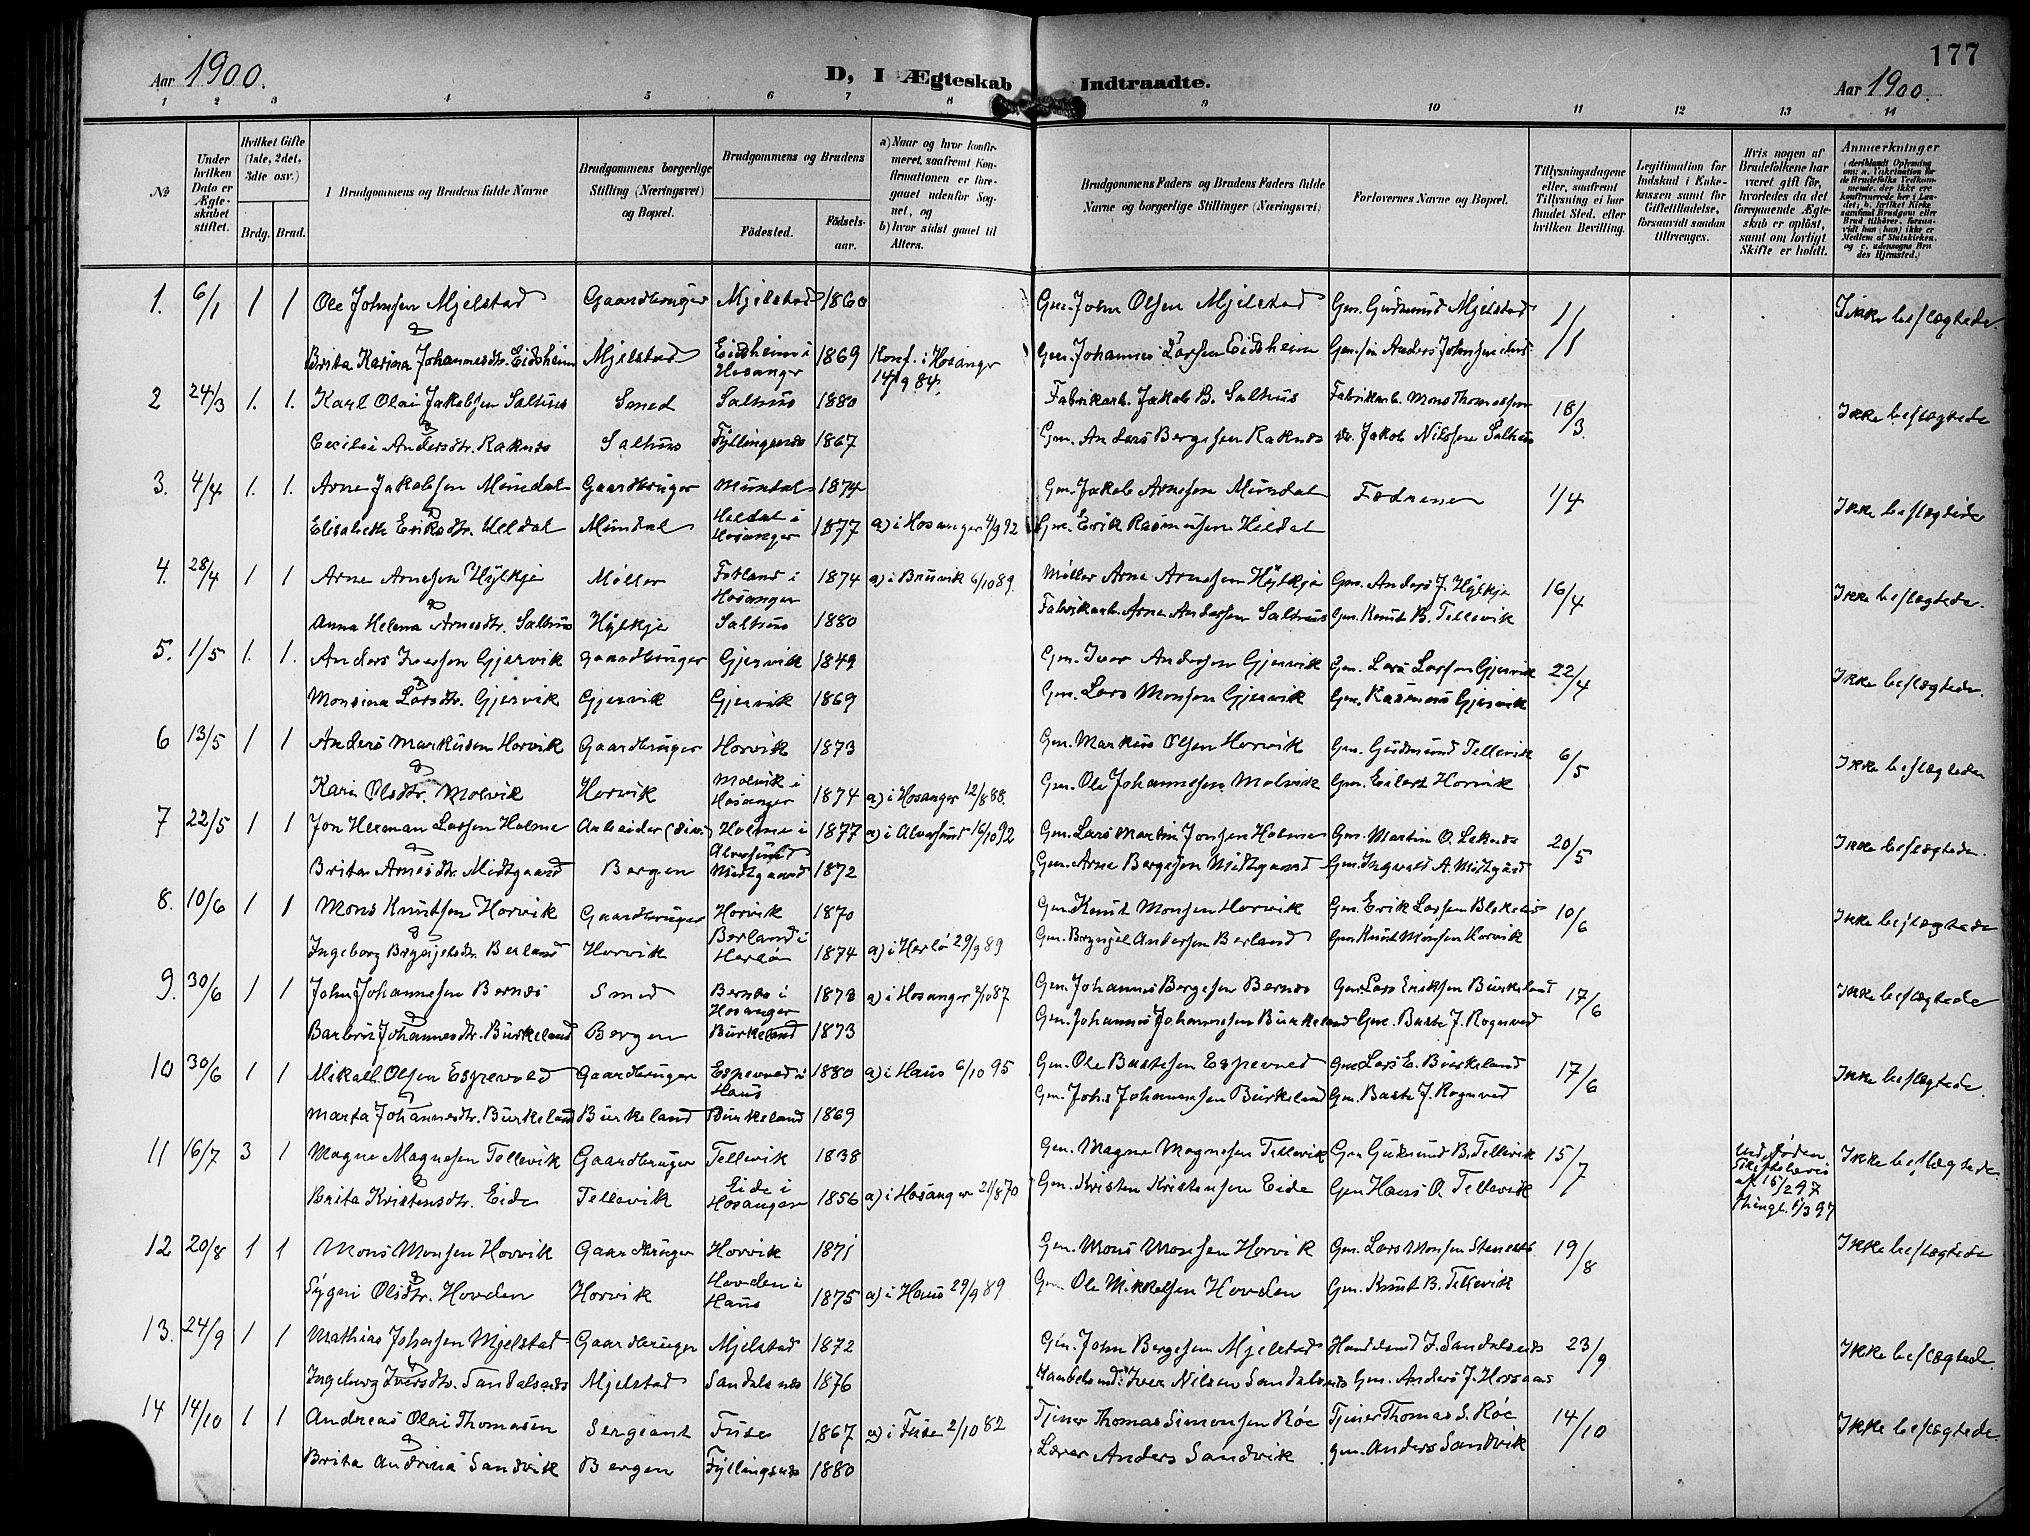 177
Aar 1900. D, I Ægteskab Indtraadte. Aar 1900.
1 2 3 4 5 6 7 8 9 10 11 12 13 14
№ Under hvilken Dato er Ægteskabet stiftet. Hvilket Gifte (1ste, 2det, 3die osv.) Brdg. Brud. Brudgommens og Brudens fulde Navne Brudgommens borgerlige Stilling (Næringsvei) og Bopæl. Brudgommens og Brudens Fødested. Fødselsaar. a) Naar og hvor konfirmeret, saafremt Konfirmationen er foregaaet udenfor Sognet, og b) hvor sidst gaaet til Alters. Brudgommens Faders og Brudens Faders fulde Navne og borgerlige Stillinger (Næringsvei) Forlovernes Navne og Bopæl. Tillysningsdagene eller, saafremt Tillysning ei har fundet Sted, efter hvilken Bevilling. Legitimation for Indskud i Enkekassen samt for Giftetilladelse, forsaavidt saadan tiltrænges. Hvis nogen af Brudefolkene har været gift før, hvorledes da det foregaaende Ægteskab er opløst, samt om lovligt Skifte er holdt. Anmærkninger
1. 6/1 1 1 Ole Johnsen Mjelstad Gaardbruger Mjelstad 1860 Gm. John Olsen Mjelstad Gm. Gudmund Mjelstad 1/1 Ikke beslægtede.
& Brita Karina Johannesdtr. Eidsheim Mjelstad Eidsheim i Hosanger 1869 Konf. i Hosanger 14/9 84. Gm. Johannes Larsen Eidsheim
2 24/3 1. 1. Karl Olai Jakobsen Salhus Smed Salhus 1880 Fabrikarb. Jakob B. Salhus Fabrikarb. Mons Thomassen 18/3. Ikke beslægtede
& Cecilie Andersdtr. Raknes Salhus Fyllingsnes 1867 Gm. Anders Bergesen Raknes do. Jakob Nilsen Salhus
3. 4/4 1. 1. Arne Jakobsen Mundal Gaardbruger Mundal 1874 Gm. Jakob Arnesen Mundal Fædrene 1/4 Ikke beslægtede
& Elisabeth Eriksdtr. Heldal Mundal Heldal i Hosanger 1877 a) i Hosanger 4/9 92 Gm. Erik Rasmussen Heldal
4. 28/4 1 1 Arne Arnesen Hylkje Møller Fotland i Hosanger 1874 a) i Bruvik 6/10 89. Møller Arne Arnesen Hylkje Gm. Anders J. Hylkje 16/4 Ikke beslægtede.
& Anna Helena Arnesdtr. Salhus Hylkje Salhus 1880 Fabrikarb. Arne Andersen Salhus Gm. Knut B. Tellevik
5. 1/5 1. 1. Anders Iversen Gjervik Gaardbruger Gjervik 1849 Gm. Iver Andersen Gjervik Gm. Lars Larsen Gjervik 22/4 Ikke beslægtede.
& Monsina Larsdtr. Gjervik Gjervik Gjervik 1869 Gm. Lars Monsen Gjervik Gm. Rasmus Gjervik
6 13/5 1 1 Anders Markusen Horvik Gaardbruger Horvik 1873 Gm. Markus Olsen Horvik Gm. Gudmund Tellevik 6/5 Ikke beslægtede
& Kari Olsdtr. Molvik Horvik Molvik i Hosanger 1874 a) i Hosanger 12/8 88. Gm. Ole Johannesen Molvik Gm. Eilert Horvik
7 22/5 1 1 Jon Herman Larsen Holme Arbeider Holme i Alversund 1877 a) i Alversund 16/10 92 Gm. Lars Martin Jonsen Holme Gm. Martin O. Leknes 20/5 Ikke beslægtede.
& Brita Arnesdtr. Midtgaard Bergen Midtgaard 1872 Gm. Arne Bergesen Midtgaard Gm. Ingvald A. Midtgård
8. 10/6 1 1 Mons Knutsen Horvik Gaardbruger Horvik 1870 Gm. Knut Monsen Horvik Gm. Erik Larsen 10/6 Ikke beslægtede
& Ingeborg Brynjelsdtr. Berland Horvik Berland i Herlø 1874 a) i Herlø 29/9 89 Gm. Brynjel Andersen Berland Gm. Knut Monsen Horvik
9. 30/6 1 1 John Johannesen Bernes Smed Bernes i Hosanger 1873 a) i Hosanger 2/10 87 Gm. Johannes Bergesen Bernes Gm. Lars Eriksen Burkeland 17/6 Ikke beslægtede
& Barbru Johannesdtr. Burkeland Bergen Burkeland 1873 Gm. Johannes Johannesen Burkeland Gm. Baste J. Rognved
10 30/6 1 1 Mikal Olsen Espevold Gaardbruger Espevold i Haus 1880 a) i Haus 6/10 95 Gm. Ole Bastesen Gm. Lars E. Burkeland 17/6 Ikke beslægtede.
& Marta Johannesdtr. Burkeland Burkeland Burkeland 1869 Gm. Johs Johannesen Burkeland Gm. Baste J. Rognved
11 16/7 3 1 Magne Magnesen Tellevik Gaardbruger Tellevik 1838 Gm. Magne Magnesen Tellevik Gm. Gudmund B. Tellevik 15/7 ved Døden Skiftebevis af 15/2 97 thingl. 1/3 97 Ikke beslægtede.
& Brita Kristensdtr. Eide Tellevik Eide i Hosanger 1856 a) i Hosanger 21/8 70 Gm. Kristen Kristensen Eide Gm. Hans O. Tellevik
12 20/8 1 1 Mons Monsen Horvik Gaardbruger Horvik 1871 Gm. Mons Monsen Horvik Gm. Lars Monsen 19/8 Ikke beslægtede
& Sygni Olsdtr. Hovden Horvik Hovden i Haus 1875 a) i Haus 29/9 89 Gm. Ole Mikkelsen Hovden Gm. Knut B. Tellevik
13. 24/9 1 1 Mathias Johnsen Mjelstad Gaardbruger Mjelstad 1872 Gm. John Bergesen Mjelstad Handelsmd I. Sandalsnes 23/9 Ikke beslægtede.
& Ingeborg Iversdtr. Sandalsnes Mjelstad Sandalsnes 1876 Handelsmd. Iver Nilsen Sandalsnes Gm. Anders J. Hopsaas
14 14/10 1 1 Andreas Olai Thomasen Sergeant Fuse 1867 a) i Fuse 2/10 82 Tjener Thomas Simonsen Röe Tjener Thomas S. Röe 14/10 Ikke beslægtede.
& Brita Andrina Sandvik Bergen Fyllingsnes 1880 Lærer Anders Sandvik gm. Anders Sandvik